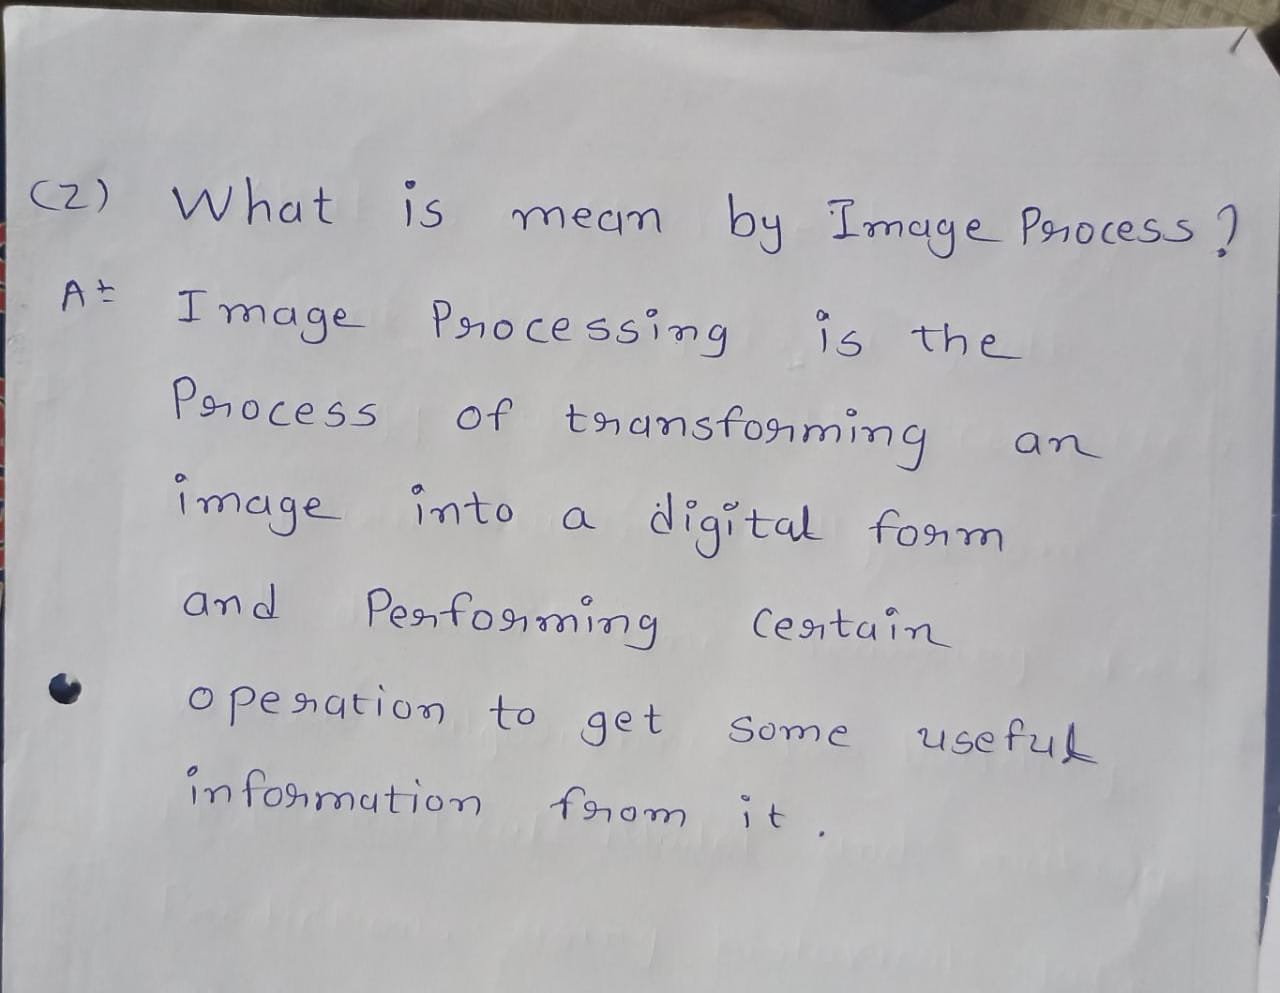 (2) What is mean by Image Process?
A:- Image Processing is the
Process of transforming an
image into a digital form
and Performing Certain
operation to get some useful
information from it.